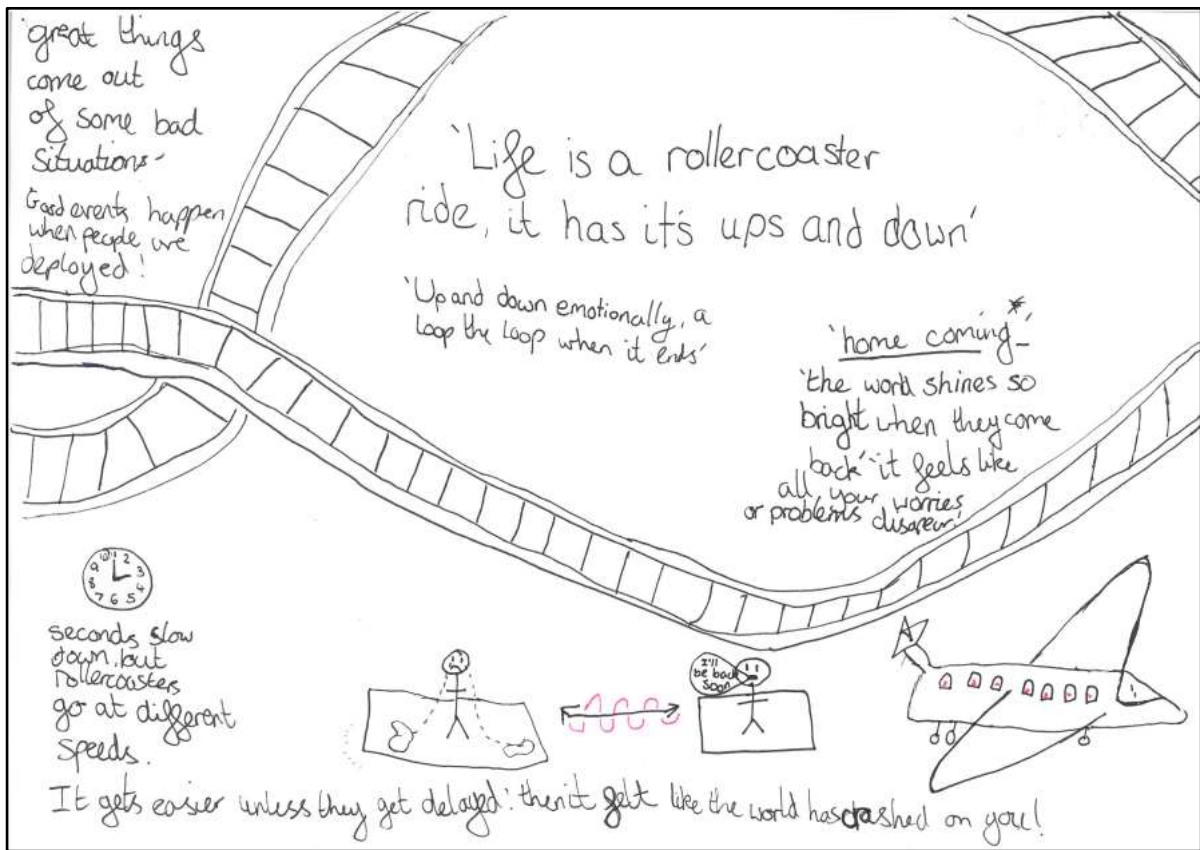 'great things
come out
of some bad
situations'
Good events happen
when people are
deployed!
'Life is a rollercoaster
ride, it has it's ups and down'
'Up and down emotionally, a
loop the loop when it ends'
'home coming'
'the world shines so
bright when they come
back' 'it feels like
all your worries
or problems disapear!
10 11 2
9 3
8 4
7 6 5
seconds slow
down, but
rollercoasters
go at different
speeds.
I'll
be back
soon
It gets easier unless they get delayed: then it felt like the world has crashed on you!